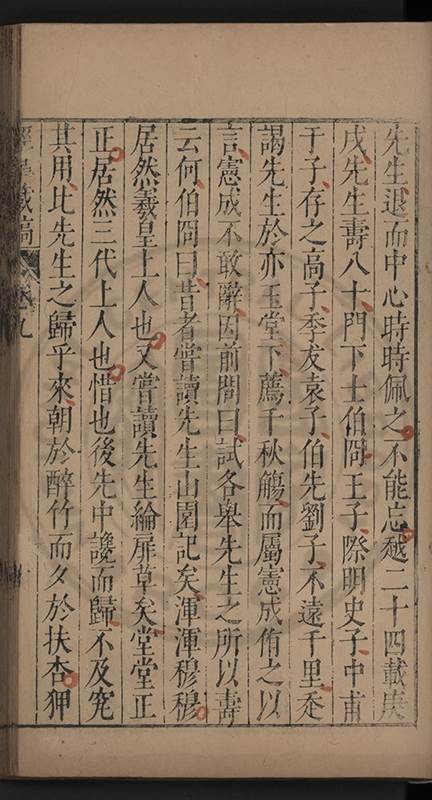 先生退而中心時時佩之不能忘越二十四載庚
戌先生壽八十門下士伯冏王子際明史子中甫
于子存之高子季友袁子伯先劉子不遠千里走
謁先生於亦玉堂下薦千秋觴而屬憲成侑之以
言憲成不敢辭因前問曰試各舉先生之所以壽
云何伯冏曰昔者嘗讀先生山園記矣渾渾穆穆
居然羲皇上人也又嘗讀先生綸扉草矣堂堂正
正居然三代上人也惜也後先中讒而歸不及究
其用比先生之歸乎來朝於醉竹而夕於扶杏狎
藏稿 卷九